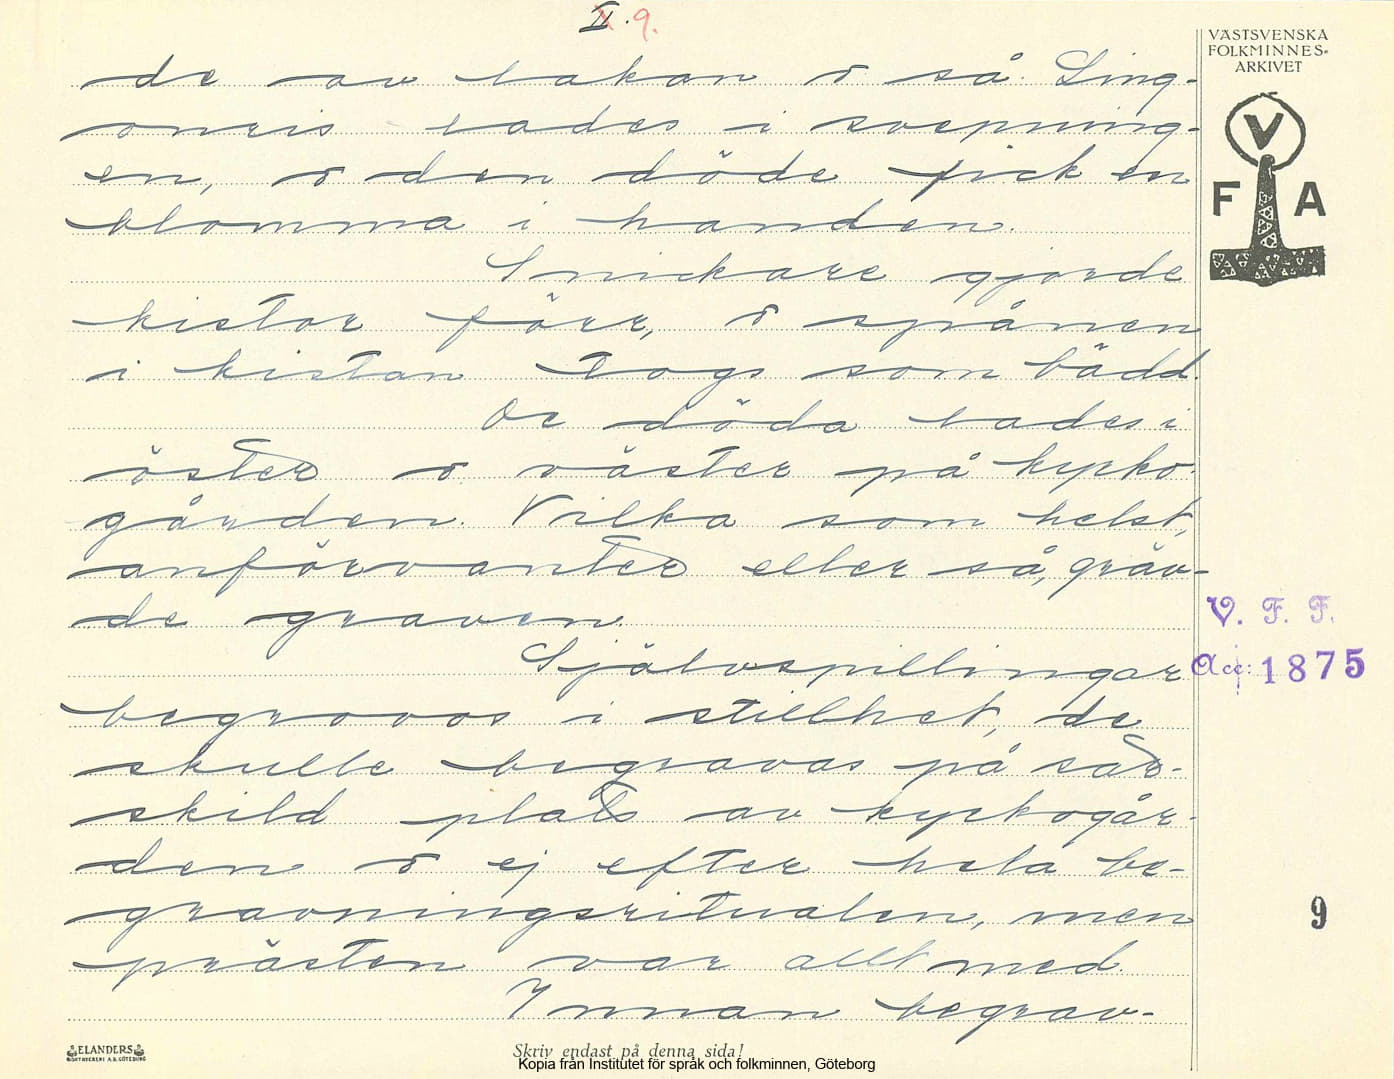 II. 9.
VÄSTSVENSKA
FOLKMINNES-
ARKIVET
V
F A
de av lakan o så. Ling-
onris lades i svepning-
en, o den döde fick en
blomma i handen.
Snickare gjorde
kistor förr, o spånen
i kistan togs som bädd.
De döda lades i
öster o väster på kyrko-
gården. Vilka som helst,
anförvanter eller så, gräv-
de graven.
Självspillingar
begrovos i stillhet, de
skulle begravas på sär-
skild plats av kyrkogår-
den o ej efter hela be-
gravningsritualen, men
prästen var allt med.
Innan begrav-
V. F. F.
Acc: 1875
9
ELANDERS
BOKTRYCKERI A.B. GÖTEBORG
Skriv endast på denna sida!
Kopia från Institutet för språk och folkminnen, Göteborg